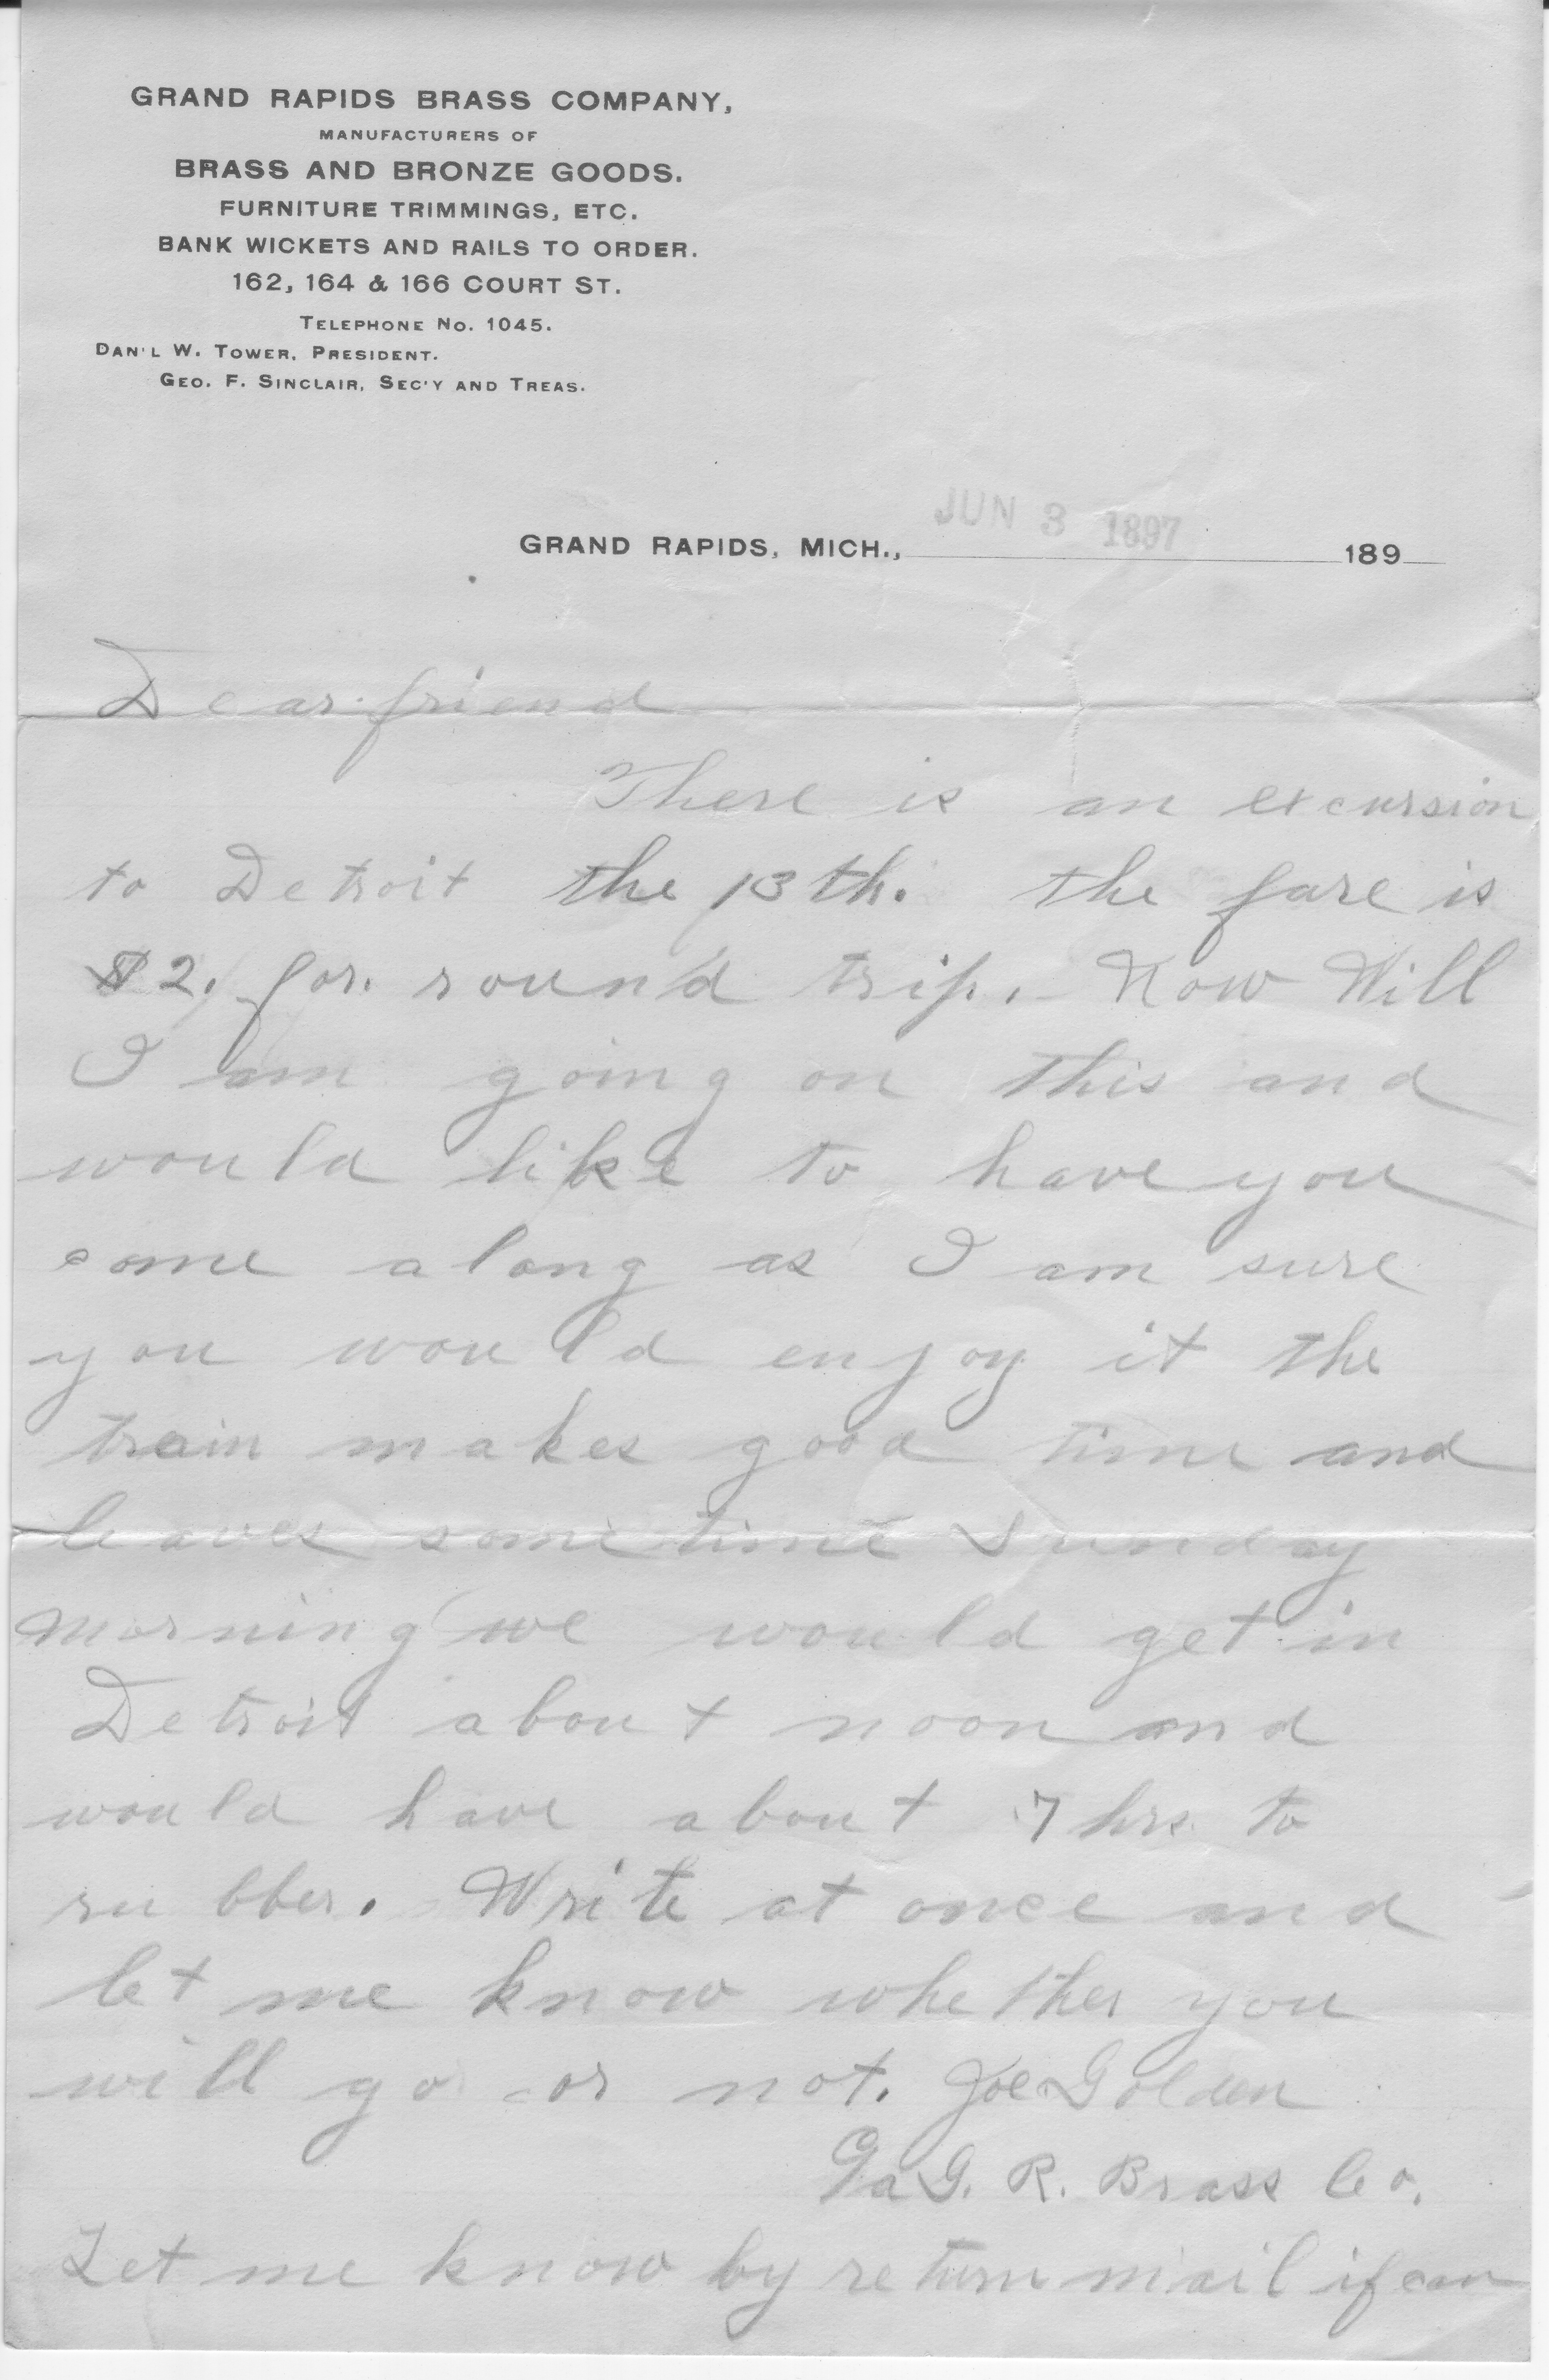 GRAND RAPIDS BRASS COMPANY,
MANUFACTURERS OF
BRASS AND BRONZE GOODS.
FURNITURE TRIMMINGS, ETC.
BANK WICKETS AND RAILS TO ORDER.
162, 164 & 166 COURT ST.
TELEPHONE NO. 1045.
DAN'L W. TOWER, PRESIDENT.
GEO. F. SINCLAIR, SEC'Y AND TREAS.
JUN 3 1897
GRAND RAPIDS, MICH., 189
Dear friend
There is an excursion
to Detroit the 13th. the fare is
$2. for. round trip. Now Will
I am going on this and
would like to have you
come along as I am sure
you would enjoy it the
train makes good time and
leaves sometime Sunday
morning we would get in
Detroit about noon and
would have about 7 hrs to
rubber. Write at once and
let me know whether you
will go or not. Joe Golden
G. R. Brass Co.
Let me know by return mail if can